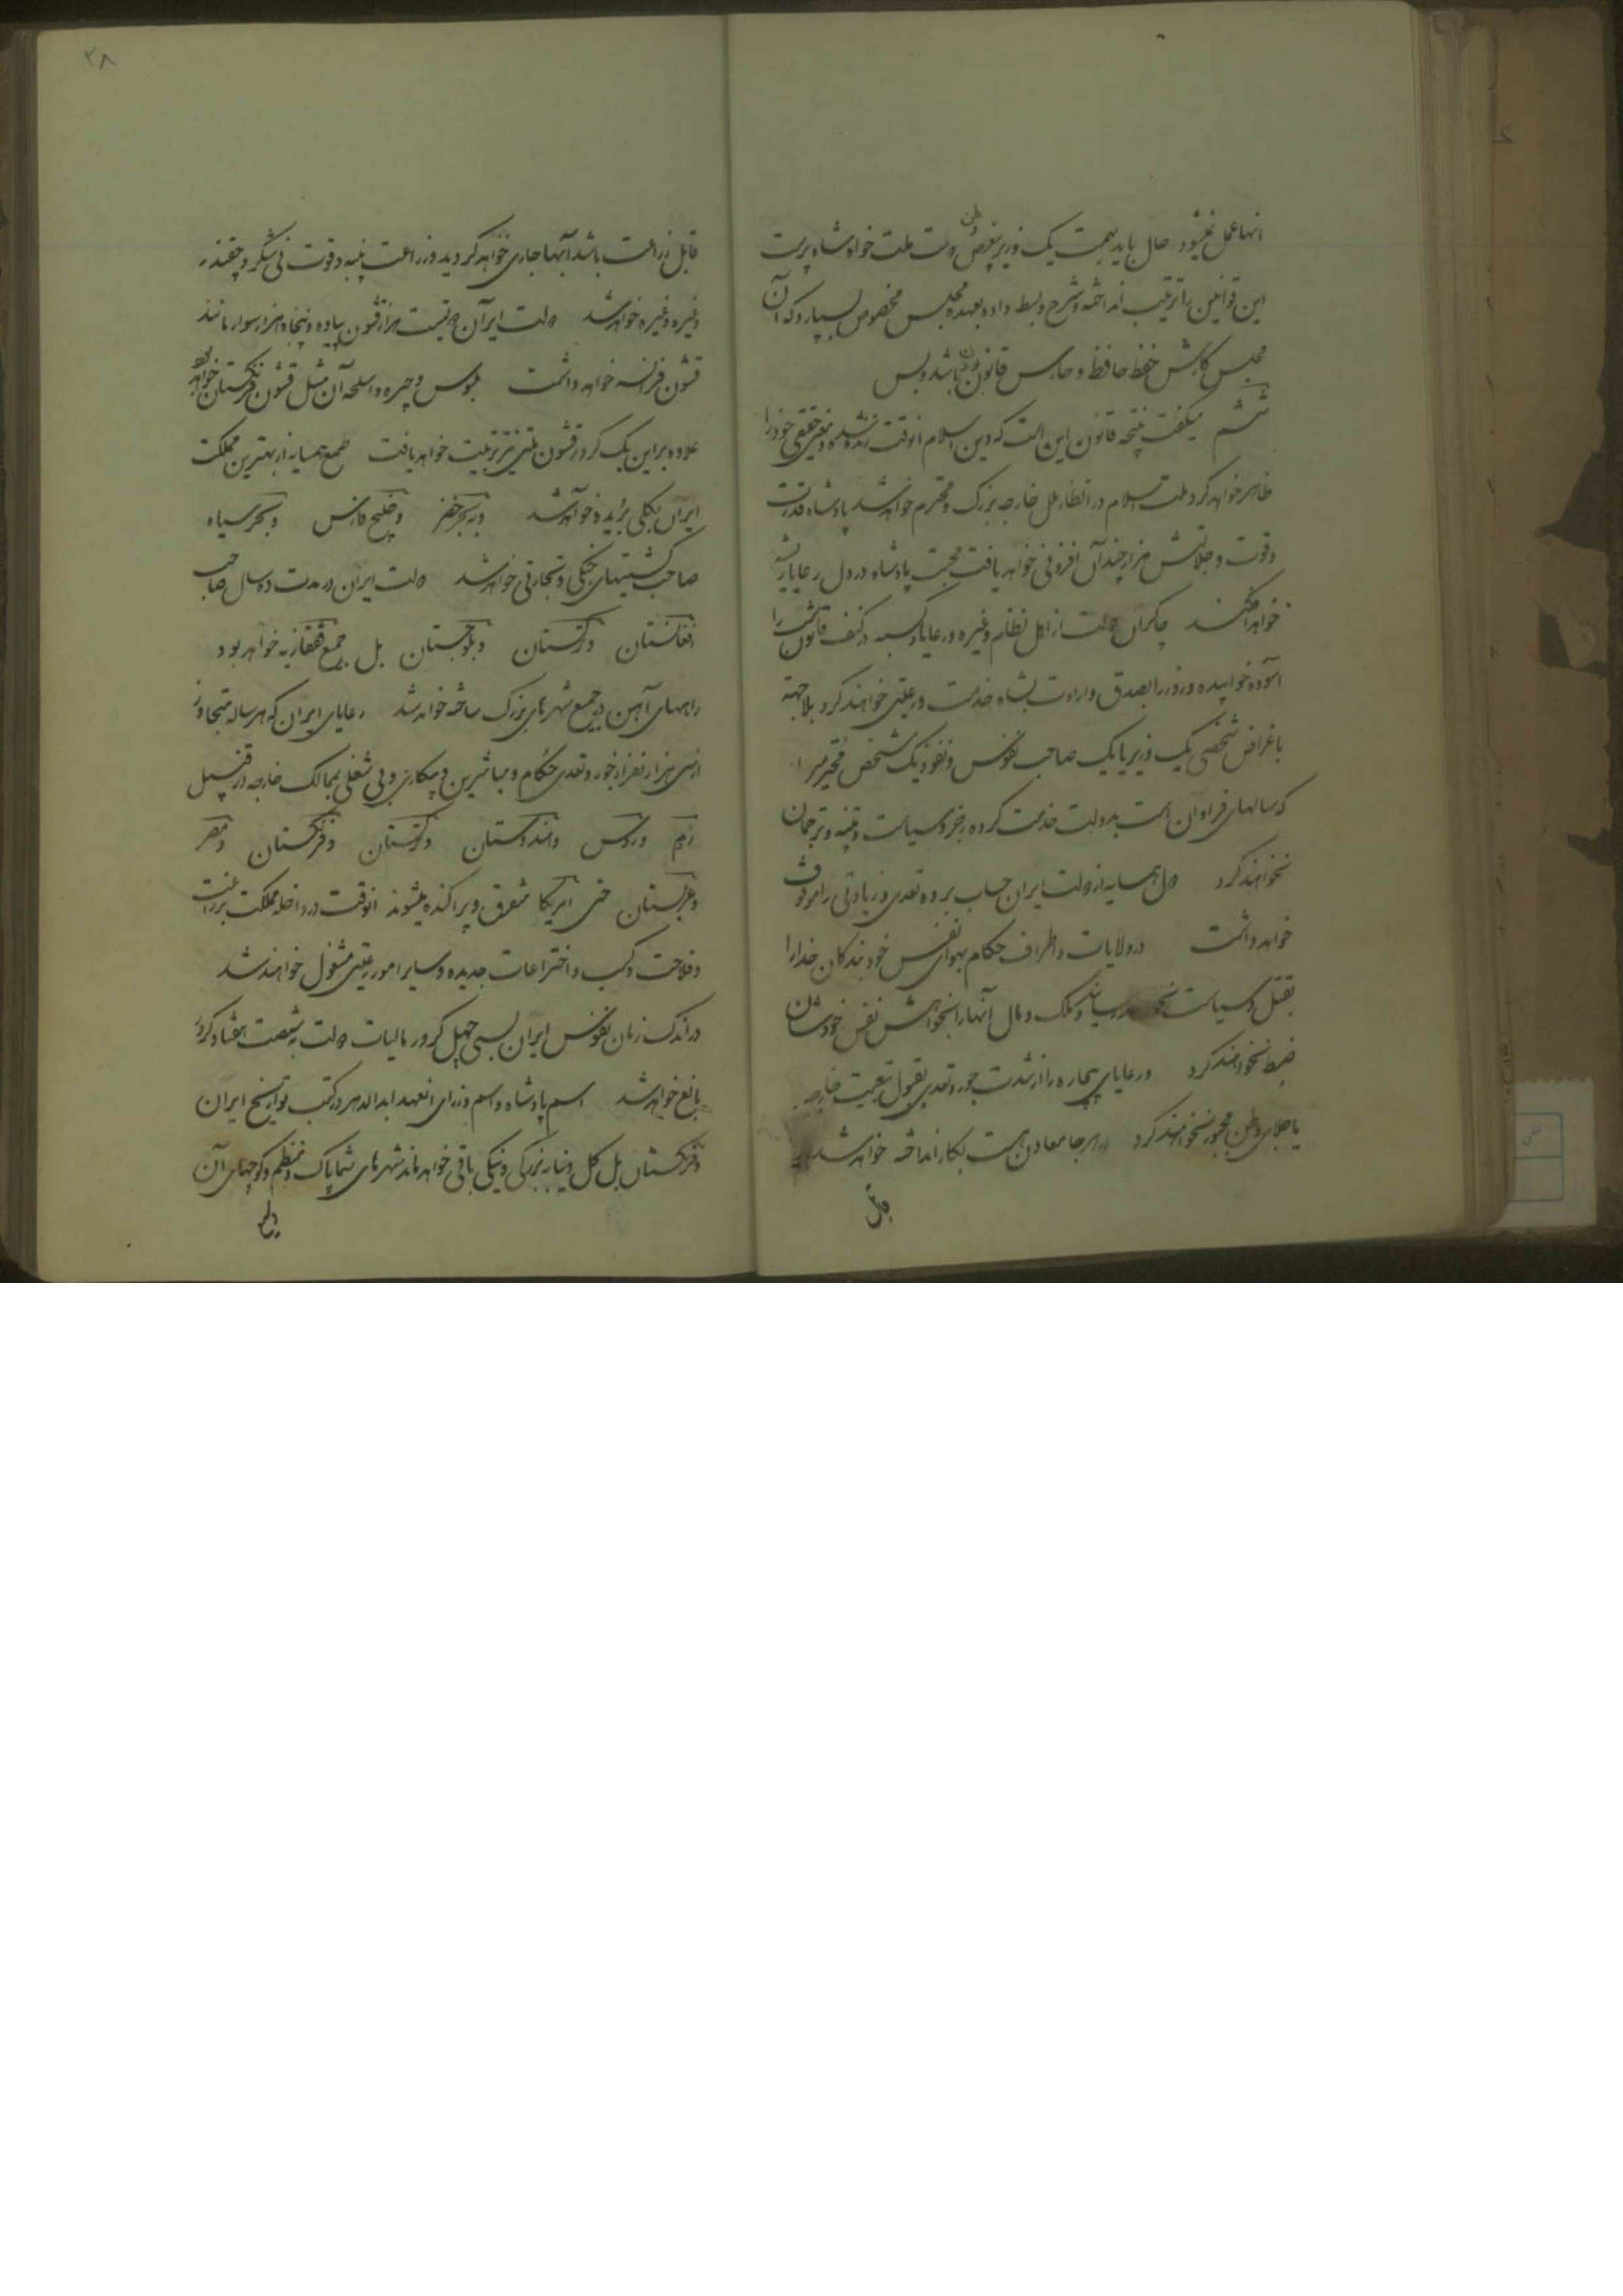 انها عمل نمیشود حال باید بهمت یک وزیر بیغرض وطن دوست ملت خواه شاه پرست
این قوانین را ترتیب انداخته و شرح و بسط داده و بعهده مجلس مخصوص بسپارد که آن
مجلس کارش حفظ حافظ و حارس قانون باشد و بس
ششم میگفت نتیجه قانون این است که دین اسلام انوقت زنده شده و معنی حقیقی خود را
ظاهر خواهد کرد ملت اسلام در انظار ملل خارجه بزرگ و محترم خواهد شد پادشاه قدرت
و قوت و جلالتش هزار چندان افزونی خواهد یافت محبت پادشاه در دل رعایا ریشه
خواهد افکند چاکران دولت از اهل نظام و غیره و رعایا و کسبه در کنف قانون شب را
آسوده خوابیده و روز را بصدق و ارادت بشاه خدمت و رعیتی خواهند کرد بلا جهة
باغراض شخصی یک وزیر یا یک صاحب نفوس و نفوذ یک شخص
که سالهای فراوان است بدولت خدمت کرده زجر و سیاست و تنبیه و ترجمان
نخواهند کرد دول همسایه از دولت ایران حساب برده تعدی و زیادتی را موقوف
خواهد داشت در ولایات و اطراف حکام بهوای نفس خود بندکان خدا را
بقتل و سیاست نخواهند رسانید و ملک و مال آنها را بخواهش نفس خودشان
ضبط نخواهند کرد و رعایای بیچاره را از شدت جور و تعدی بقبول تبعیت خارجه
یا جلای وطن مجبور نخواهند کرد در هر جا معادن هست بکار انداخته خواهد شد
قابل
۲۸
قابل زراعت باشد آبها جاری خواهد کردید و زراعت پنبه و قوت نی شکر و چقندر
و غیره و غیره خواهد شد دولت ایران دویست هزار قشون پیاده و پنجاه هزار سوار مانند
قشون فرانسه خواهد داشت ملبوس و جیره و اسلحه آن مثل قشون فرنکستان خواهد بود
علاوه بر این یک کرور قشون ملتی نیز تربیت خواهد یافت طمع همسایه از بهترین مملکت
ایران بکلی بریده خواهد شد و در بحر خضر و خلیج فارس و بحر سیاه
صاحب کشتیهای جنکی و تجارتی خواهد شد دولت ایران در مدت ده سال صاحب
افغانستان و ترکستان و بلوچستان بل جمع قفقازیه خواهد بود
راههای آهن در جمیع شهرهای بزرک ساخته خواهد شد رعایای ایران که هر ساله متجاوز
از سی هزار نفر از جور و تعدی حکام و مباشرین و بیکاری و بی شغلی بممالک خارجه از قبیل
روم و روس و هندوستان و ترکستان و فرنکستان و مصر
و عربستان حتی امریکا متفرق و پراکنده میشوند انوقت در داخله مملکت بزراعت
و فلاحت و کسب و اختراعات جدیده و سایر امور رعیتی مشغول خواهند شد
در اندک زمان نفوس ایران بسی چهل کرور مالیات دولت به شصت هفتاد کرور
بالغ خواهد شد اسم پادشاه و اسم وزرای انعهد ابد الدهر در کتب تواریخ ایران
و فرنکستان بل کل دنیا به بزرکی و نیکی باقی خواهد ماند شهرهای شما پاک و منظم و کوچهای آن